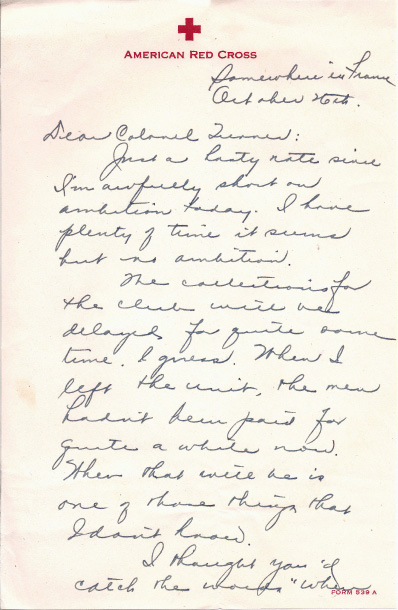 AMERICAN RED CROSS
Somewhere in France
October 26th.
Dear Colonel Turner:
Just a hasty note since
I'm awfully short on
ambition today. I have
plenty of time it seems
but no ambition.
The collections for
the club will be
delayed for quite some
time, I guess. When I
left the unit, the men
hadn't been paid for
quite a while now.
When that will be is
one of those things that
I don't know.
I thought you'd
catch the words "When
FORM 539 A